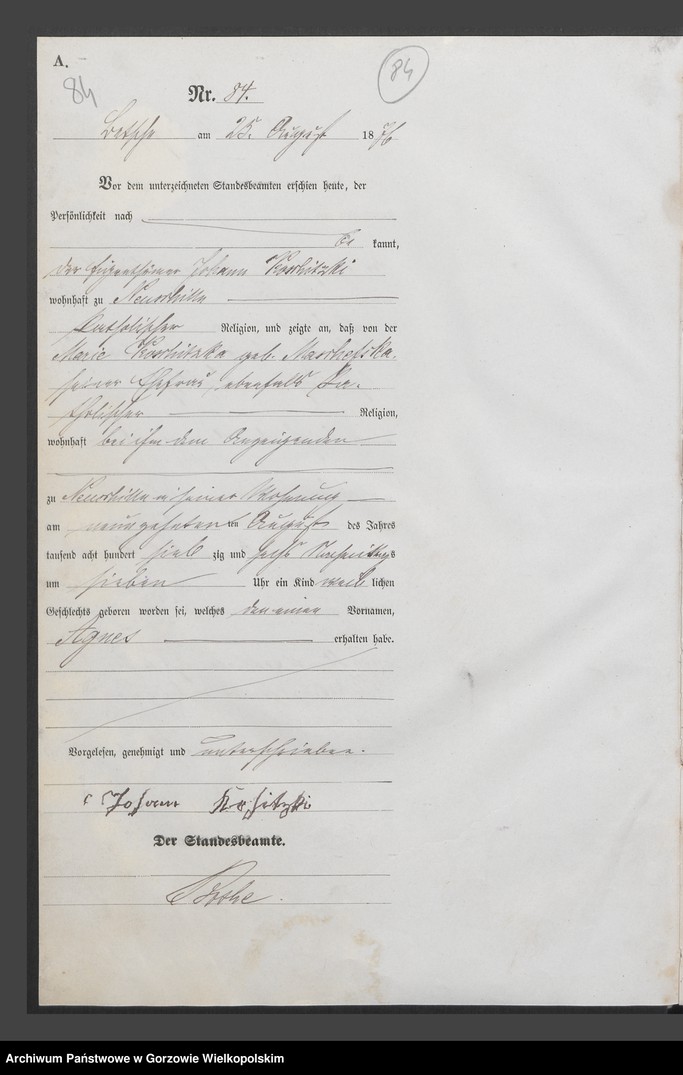 A.
84
84
Nr. 84.
Betsche am 25. August 1876
Vor dem unterzeichneten Standesbeamten erschien heute, der
Persönlichkeit nach
be kannt,
der Eigenthümer Johann
wohnhaft zu
katholischer Religion, und zeigte an, daß von der
Marie geb.
seiner Ehefrau, ebenfalls ka-
tholischer Religion,
wohnhaft bei ihm dem Anzeigenden
zu in seiner Wohnung
am neunzehnten ten August des Jahres
tausend acht hundert sieb zig und sechs Nachmittags
um sieben Uhr ein Kind weib lichen
Geschlechts geboren worden sei, welches den einen Vornamen,
Agnes erhalten habe.
Vorgelesen, genehmigt und unterschrieben.
Johann
Der Standesbeamte.
Archiwum Państwowe w Gorzowie Wielkopolskim